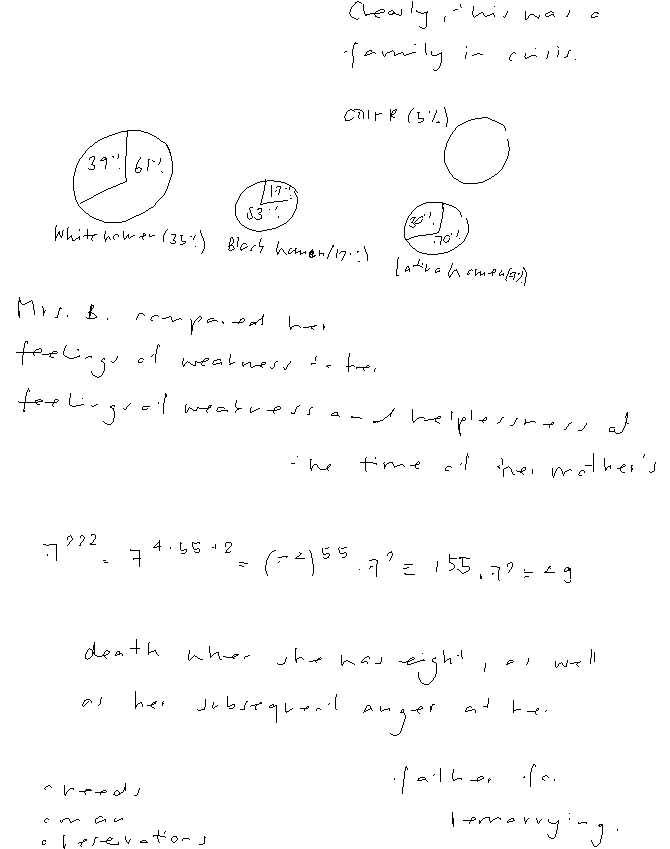 Clearly, this was a
family in crisis.
Other (5%)
39% 61%
17%
83%
30%
70%
White women (35%)
Black women (17%)
Latina women (9%)
Mrs. B. compared her
feelings of weakness to her
feelings of weakness and helplessness at
the time of her mother's
7^222 = 7^4·55+2 = (7^4)^55 · 7^2 ≡ 1^55 · 7^2 = 49
death when she was eight, as well
as her subsequent anger at her
father for
remarrying.
needs
on an
observations